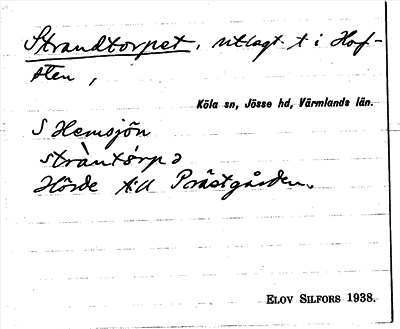 Strandtorpet, utlagt t i Hof-
sten,
Köla sn, Jösse hd, Värmlands län.
S Hemsjön
stràntórp ə
Hörde till Prästgården.
ELOV SILFORS 1938.